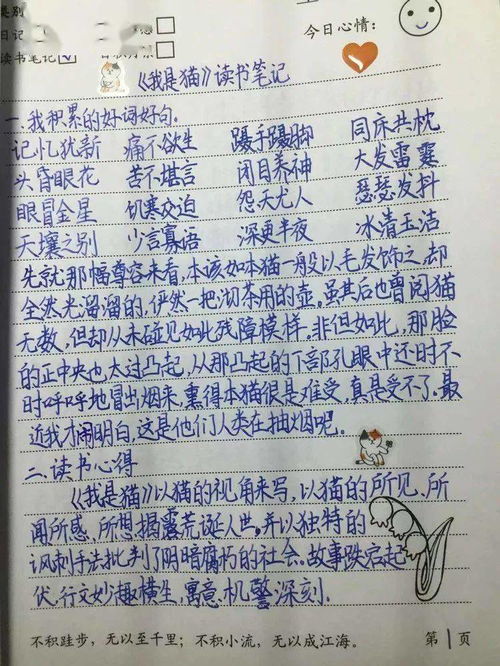 类别
日记
今日心情：
读书笔记
《我是猫》读书笔记
一.我积累的好词好句.
记忆犹新 痛不欲生 蹑手蹑脚 同床共枕
头昏眼花 苦不堪言 闭目养神 大发雷霆
眼冒金星 饥寒交迫 怨天尤人 瑟瑟发抖
天壤之别 少言寡语 深更半夜 冰清玉洁
先就那幅尊容来看,本该如本猫一般以毛发饰之,却
全然光溜溜的,俨然一把沏茶用的壶.虽其后也曾阅猫
无数,但却从未碰见如此残障模样.非但如此,那脸
的正中央也太过凸起,从那凸起的下部孔眼中还时不
时呼呼地冒出烟来,熏得本猫很是难受,真是受不了.最
近我才闹明白,这是他们人类在抽烟吧.
二.读书心得
《我是猫》以猫的视角来写,以猫的所见、所
闻所感、所想揭露荒诞人世.并以独特的
讽刺手法批判了阴暗腐朽的社会.故事跌宕起
伏.行文妙趣横生,寓意、机警深刻.
不积跬步，无以至千里；不积小流，无以成江海。 第1页